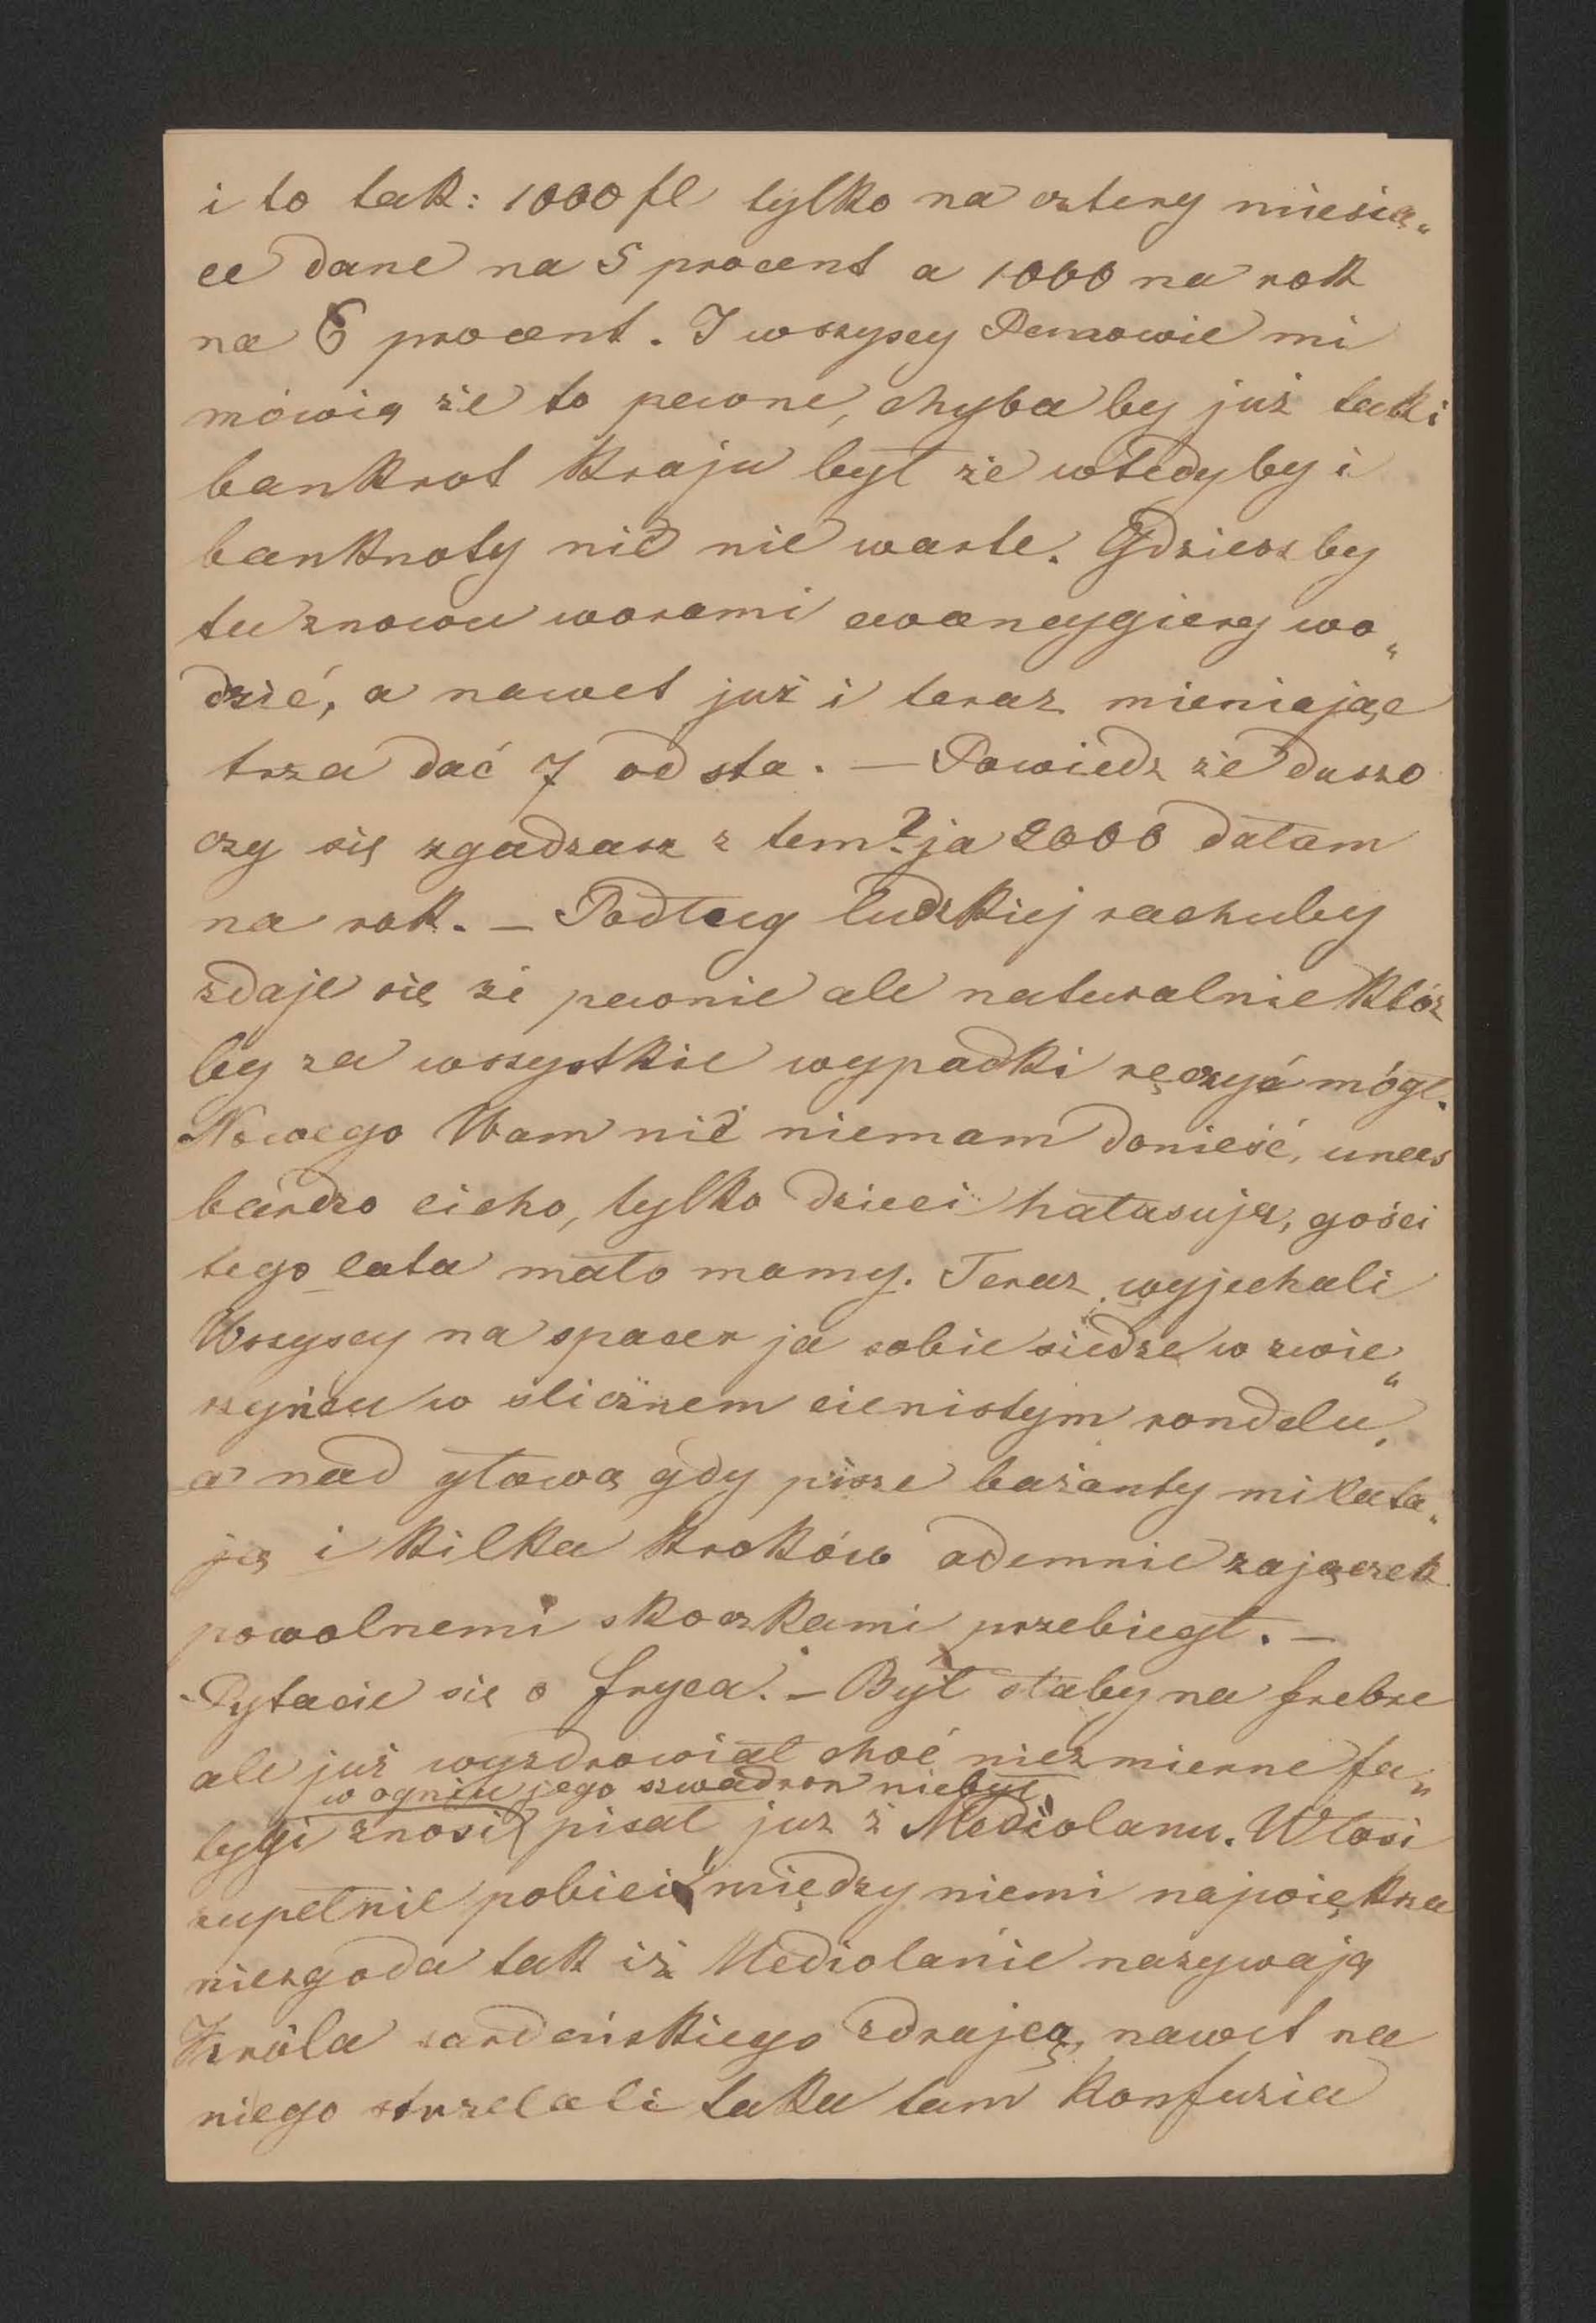 i to tak: 1000 fl tylko na cztery miesią„
ce dane na 5 procent a 1000 na rok
na 6 procent. I wszyscy Panowie mi
mówią że to pewne, chyba by już taki
bankrot kraju był że wtedy by i
banknoty nic nie warte. Gdzieszby
tu znowu worami cwancygiery wo„
dzić, a nawet już i teraz mieniając
trza dać 7 od sta. — Powiedz że duszo
czy się zgadzasz z tem? ja 2000 dałam
na rok. — Podług ludzkiej rachuby
zdaje się że pewnie ale naturalnie któż
by za wszystkie wypadki ręczyć mógł.
Nowego Wam nic niemam donieść, unas
bardzo cicho, tylko dzieci hałasują, gości
tego lata mało mamy. Teraz wyjechali
Wszyscy na spacer ja sobie siedze w zwie„
rzyńcu w ślicznem cienistym rondelu,
a nad głową gdy pisze bażanty mi lata„
ją i kilka kroków odemnie zajączek
powolnemi skoczkami przebiegł. —
Pytacie się o fryca. — Był słaby na frebre
ale już wyzdrowiał choć niezmierne fa„
w ogniu jego szwadron niebył
tygi znosił pisał już z Mediolanu. Włosi
zupełnie pobici między niemi największa
niezgoda tak iż Mediolanie nazywają
Króla sardeńskiego zdrajcą, nawet na
niego strzelali taka tam konfuzia